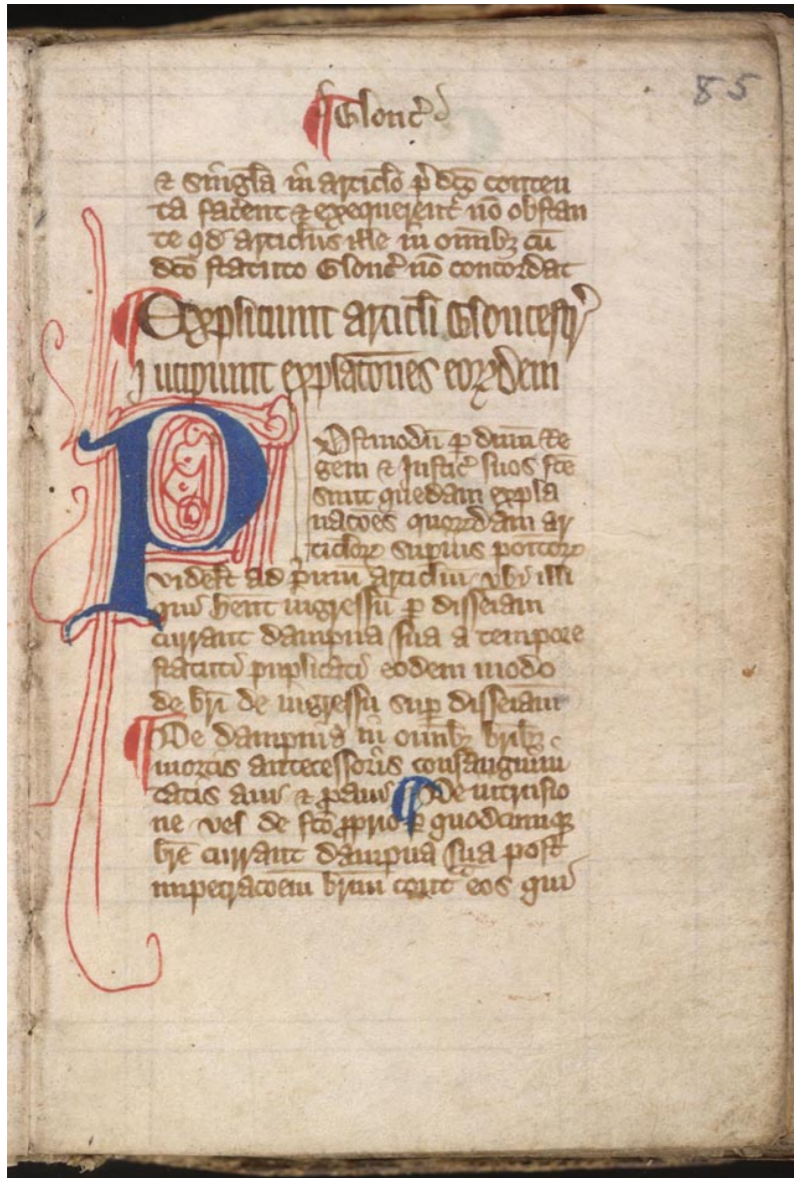 85
¶ Glouc̄
⁊ singl̄a in articl̄o p̄dc̄o conten
ta facēnt ⁊ exequerent᷑ nō obstan
te qd̄ articl̄us ille in om̄ib₃ cū
dc̄o statuto Glouc̄ nō concordat
¶ Expliciunt articl̄i Gloucestr̄
Incipiunt explac̄ōnes eoꝝdem
Postmodū ꝑ dn̄m Re
gem ⁊ Justic̄ suos fc̄e
sunt quedam expla
nac̄oēs quorūdam ar
ticl̄oꝝ suꝑius po᷑itoꝝ
videl̄t ad p̄mum articl̄um vbi illi
qui hēnt ingressū ꝑ disseiam̄
currant dampna sua a tempore
statuti puplicati eodem modo
de br̄i de ingressu suꝑ disseiam̄
¶ De dampnis in om̄ib₃ br̄ib₃
mortis antecessoris consanguini
tatis aui ⁊ ꝓaui ¶ De intrusio
ne vel de fc̄o ꝓprio ꝑ quodcumqꝫ
br̄e currant dampna sua post
impetrac̄oem br̄ium cont᷑ eos qui